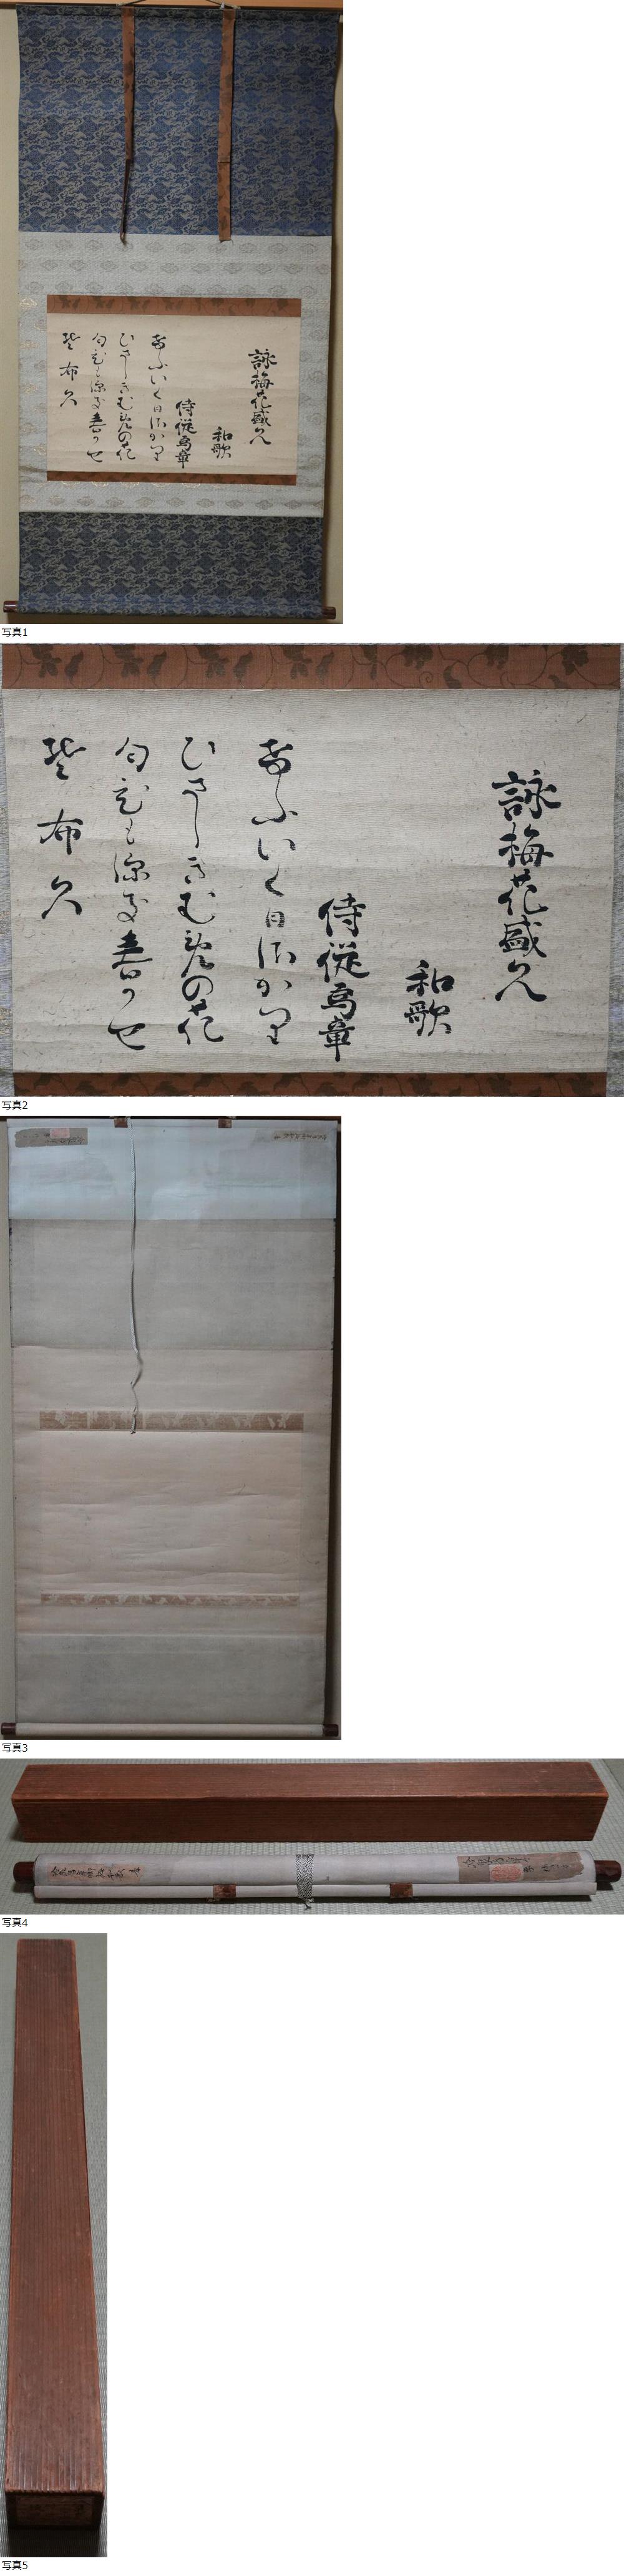 詠梅花盛久
和歌
侍従為章
希ふいく日佐かり
ひさしきむめの花
匂ひも深き春かせ
楚布久
写真1
詠梅花盛久
和歌
侍従為章
希ふいく日佐かり
ひさしきむめの花
匂ひも深き春かせ
楚布久
写真2
写真3
写真4
写真5